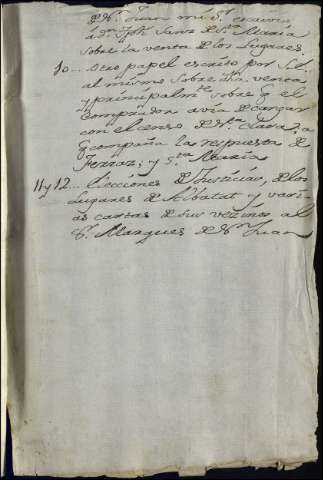 de Sn. Juan mi Sr. escrivió
a dn. Jph Sanz de Sta. Maria
sobre la venta de los Lugares.
10... Otro papel escrito por S.E.
al mismo sobre dha. venta
y principalmte. sobre q el
Comprador avia de cargar
con el censo de Sta.
q compaña las respuestas de
Ferraz, y Sta. Maria
11 y 12... Elecciones de Justicias, de los
Lugares de Albalat y vari-
as cartas de sus vezinos al
Sr. Marques de Sn. Juan